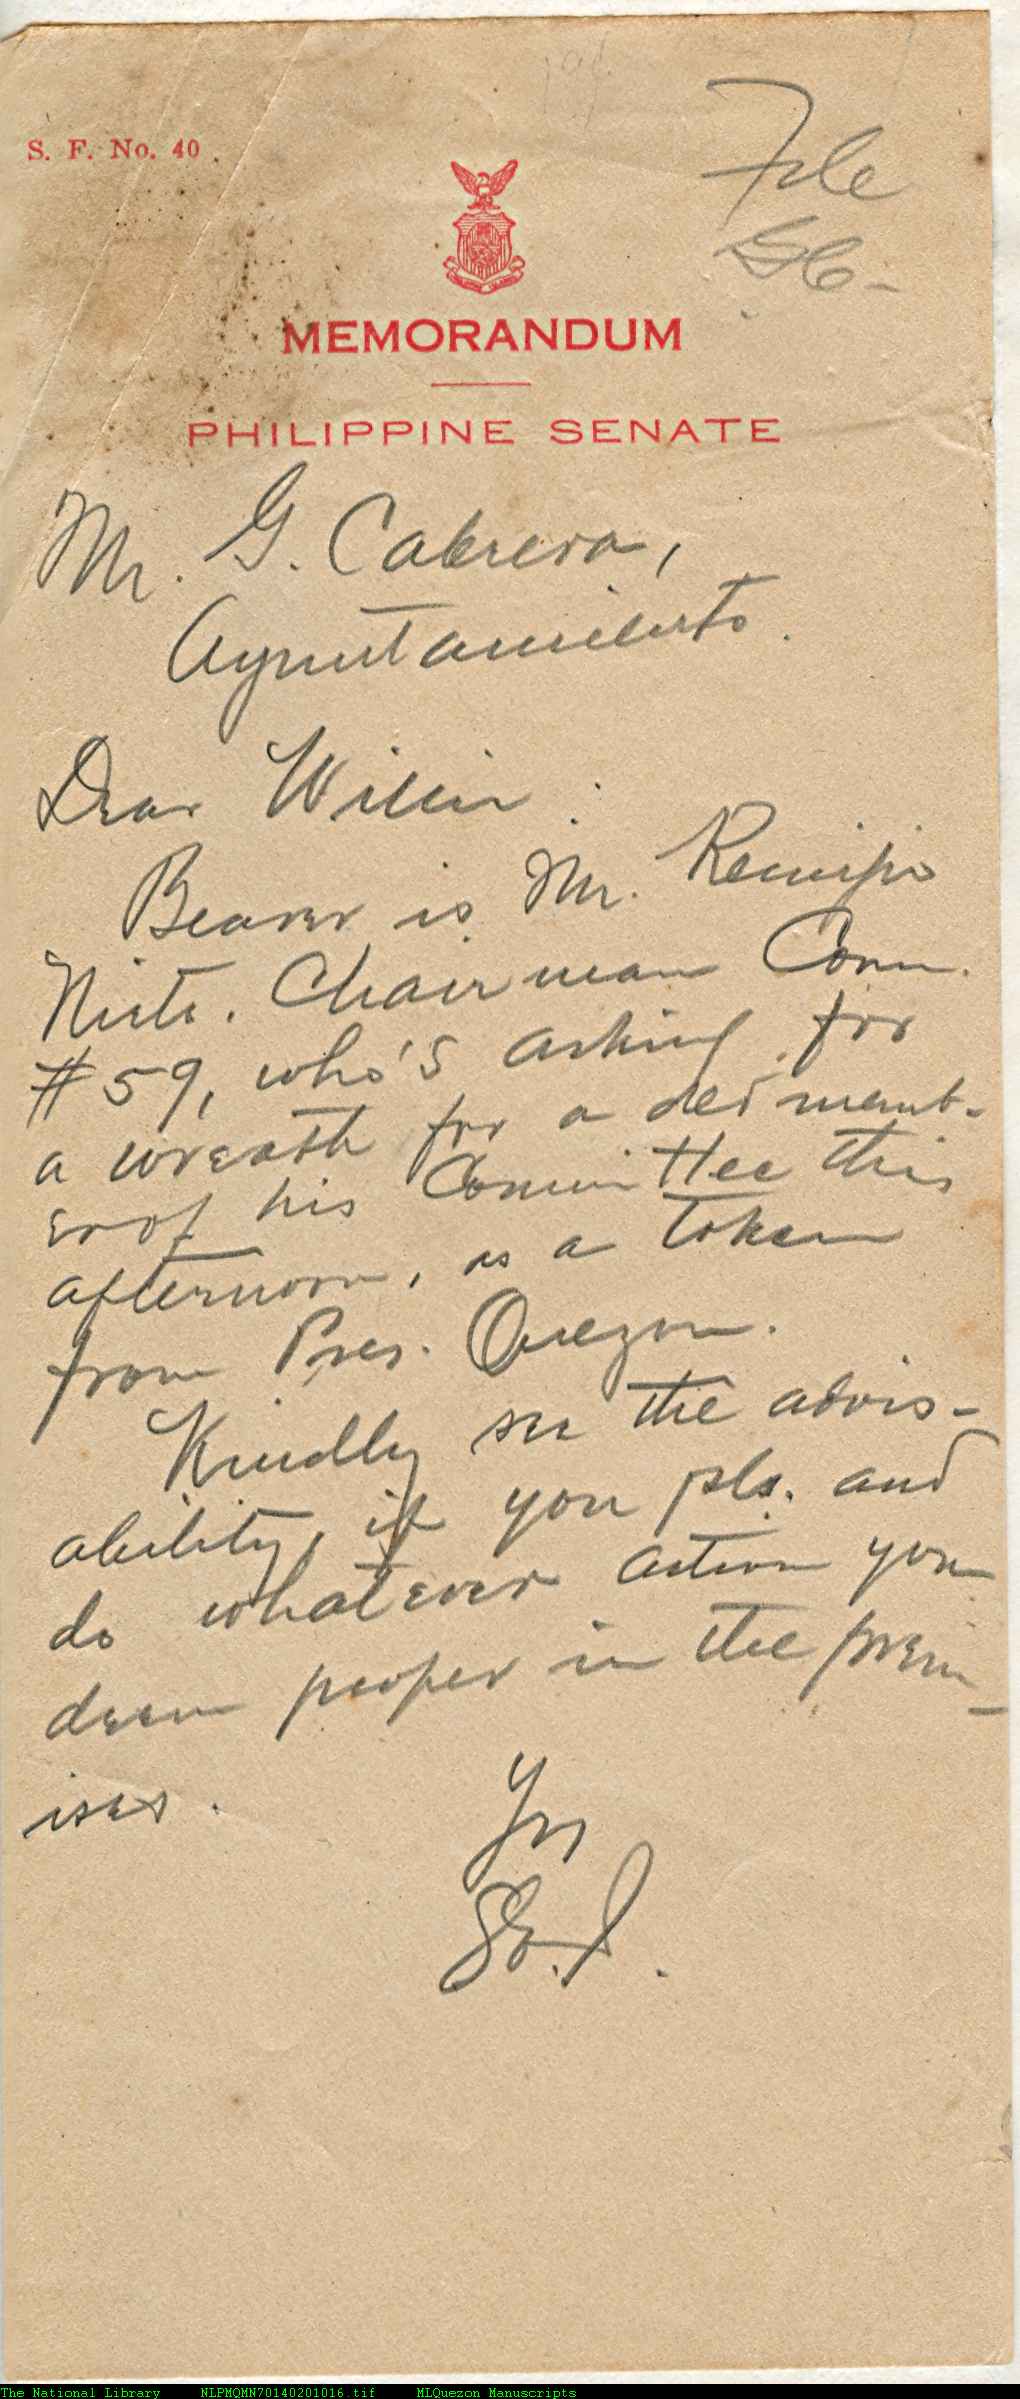 S. F. No. 40
File
MEMORANDUM
PHILIPPINE SENATE
Mr. G. Cabrera,
Ayuntamiento.
Dear
Bearer is Mr.
Chairman Comm.
#59, who's asking for
a wreath for a ded memb-
er of his Committee this
afternoon, as a token
from Pres. Quezon.
Kindly see the advis-
ability, if you pls. and
do whatever action you
deem proper in the prem-
ises.
Yrs
The National Library NLPMQMN70140201016.tif MLQuezon Manuscripts